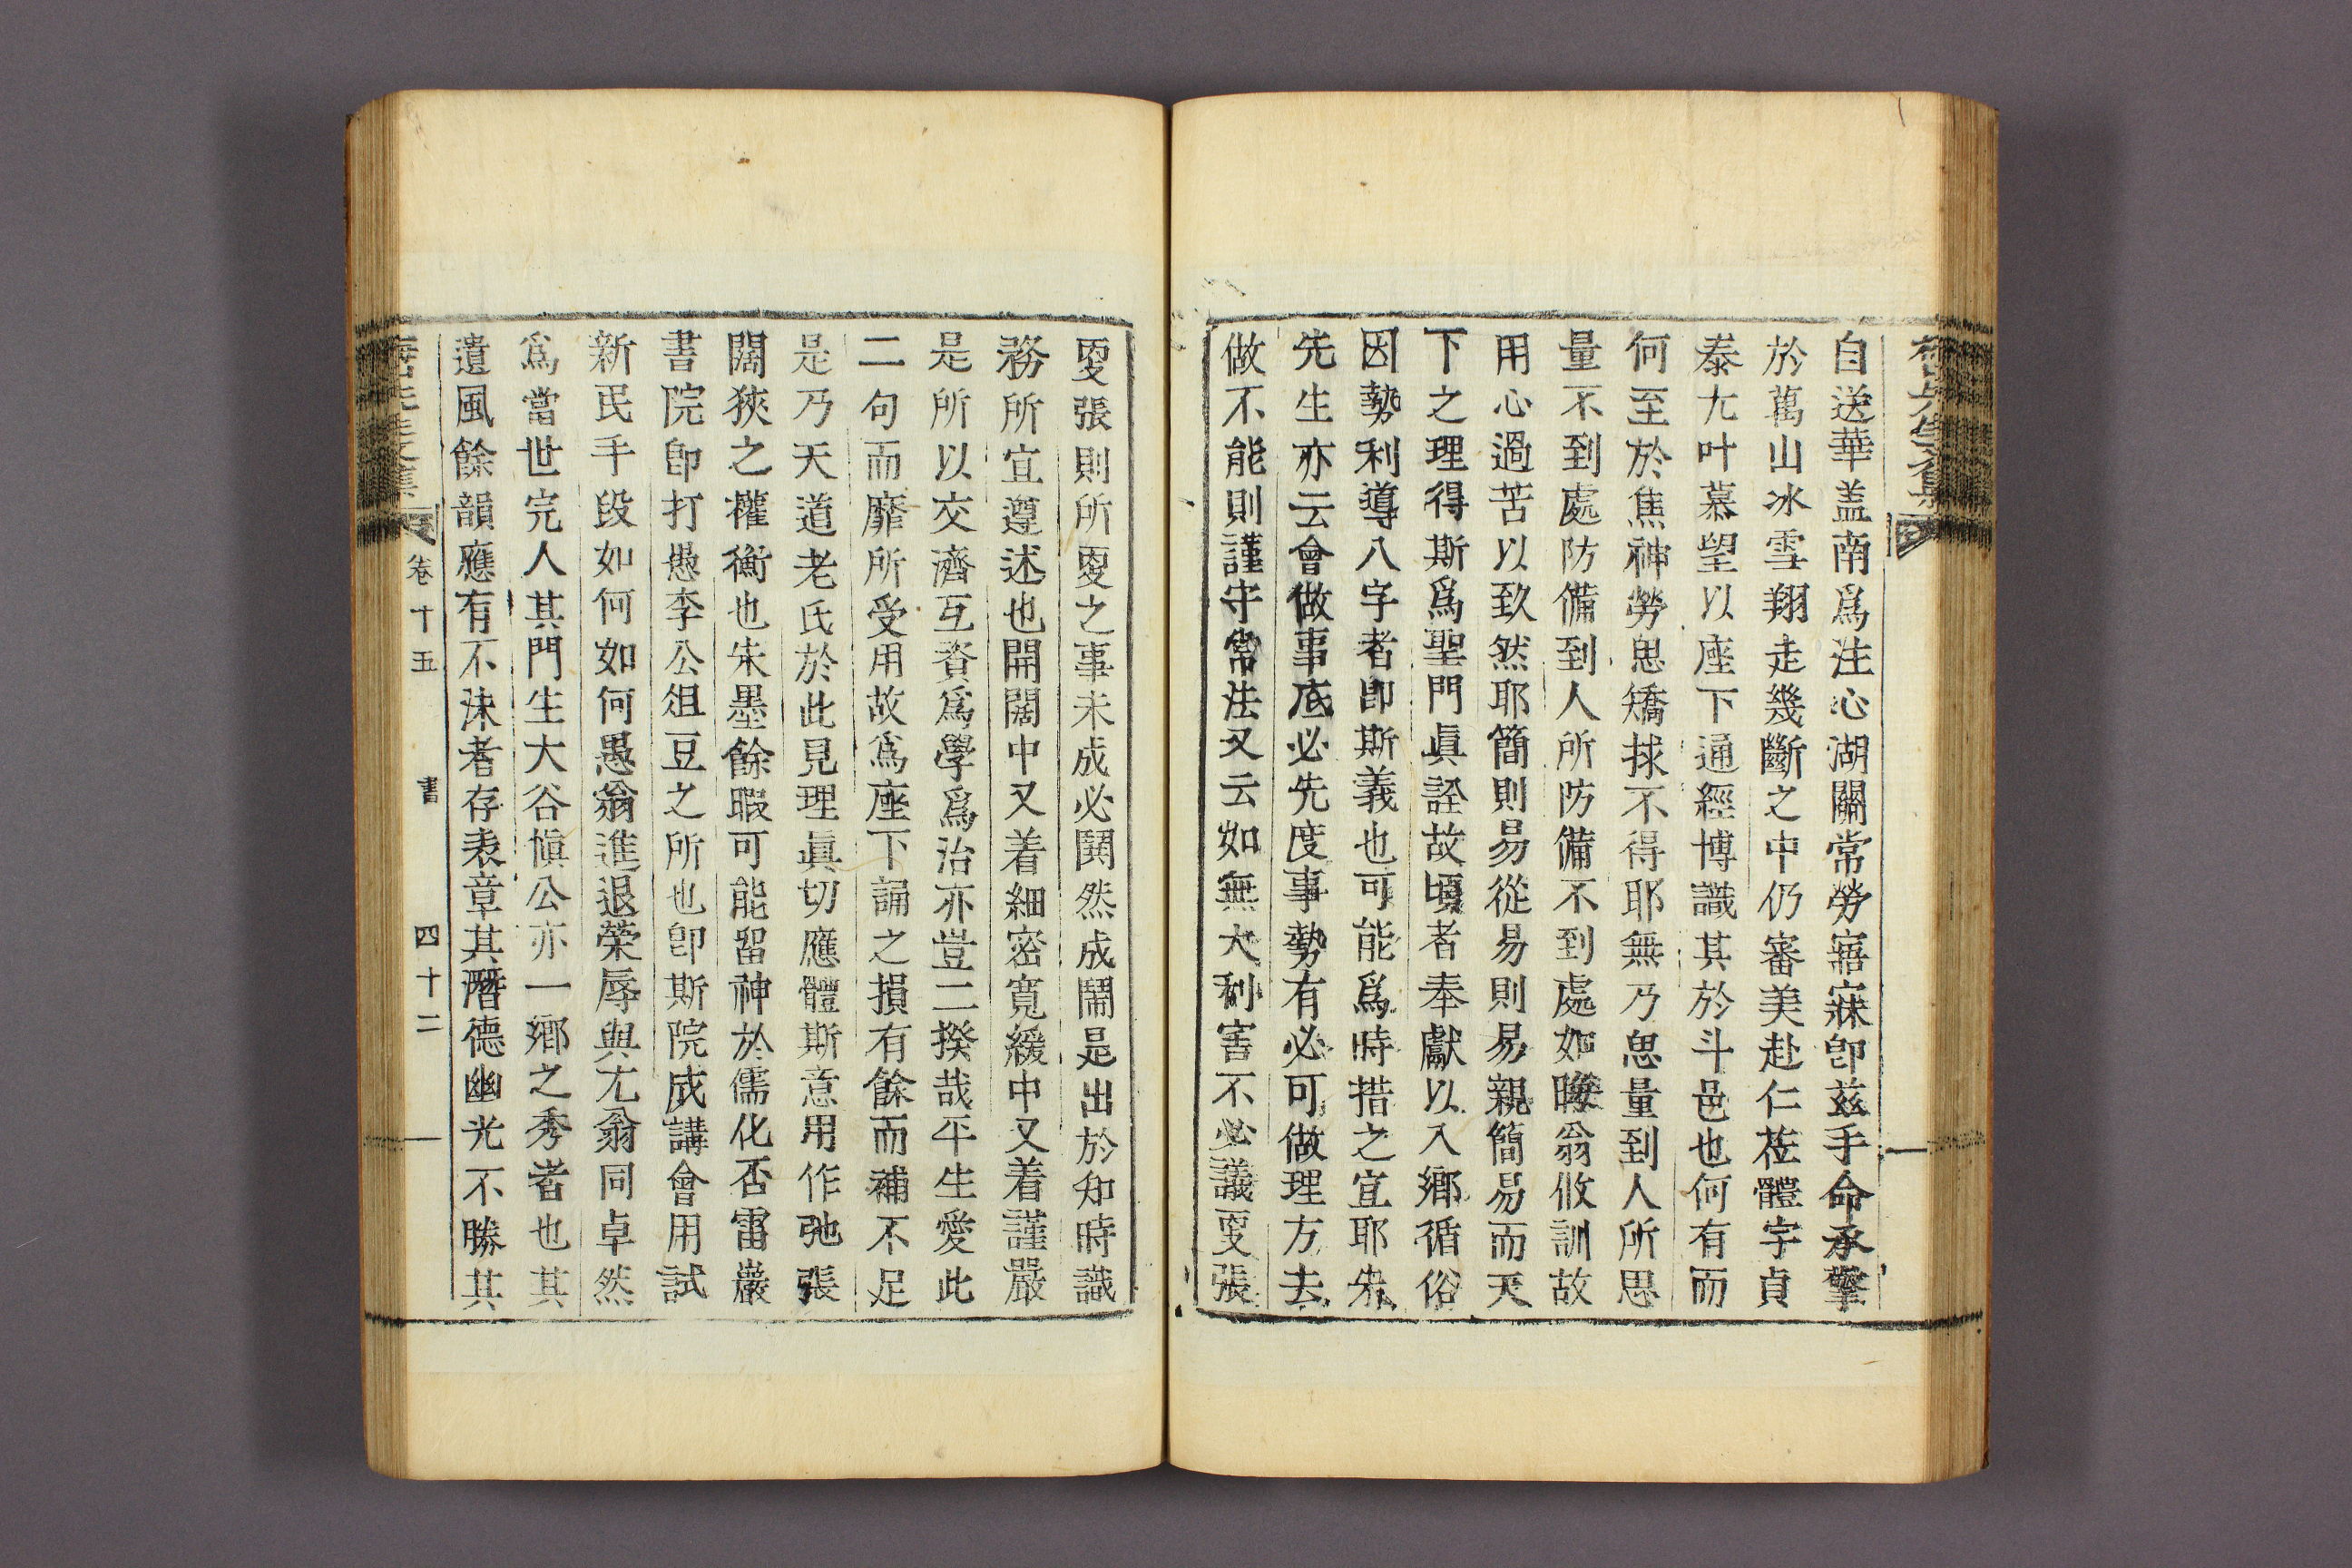 自送華盖南爲注心湖關常勞寤寐卽茲手命承擎
於萬山冰雪翔走幾斷之中仍審美赴仁莅體宇貞
泰尤叶慕望以座下通經博識其於斗邑也何有而
何至於焦神勞思矯捄不得耶無乃思量到人所思
量不到處防備到人所防備不到處如晦翁攸訓故
用心過苦以致然耶簡則易從易則易親簡易而天
下之理得斯爲聖門眞詮故頃者奉獻以入鄕循俗
因勢利導八字者卽斯義也可能爲時措之宜耶朱
先生亦云會做事底必先度事勢有必可做理方去
做不能則謹守常法又云如無大利害不必議更張
更張則所更之事未成必鬨然成鬧是出於知時識
務所宜遵述也開闊中又着細密寬緩中又着謹嚴
是所以交濟互資爲學爲治亦豈二揆哉平生愛此
二句而靡所受用故爲座下誦之損有餘而補不足
是乃天道老氏於此見理眞切應體斯意用作弛張
闊狹之權衡也朱墨餘暇可能留神於儒化否雷巖
書院卽打愚李公俎豆之所也卽斯院成講會用試
新民手段如何如何愚翁進退榮辱與尤翁同卓然
爲當世完人其門生大谷愼公亦一鄕之秀者也其
遺風餘韻應有不沬者存表章其潛德幽光不勝其
先生文集 卷十五 書 四十二